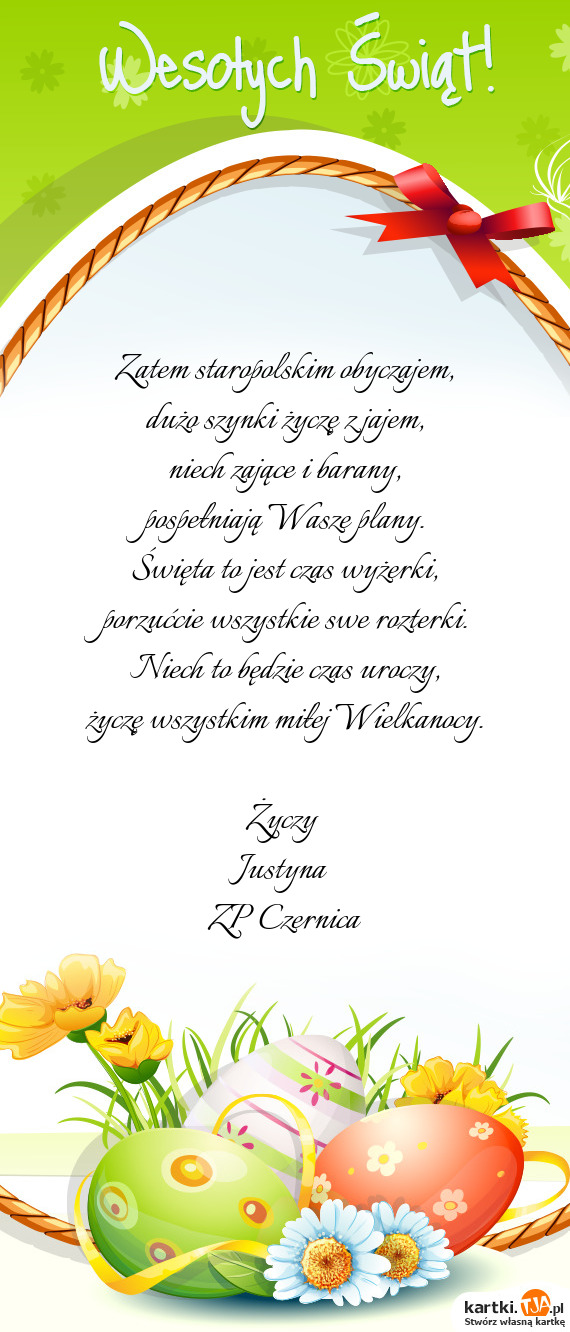 Wesołych Świąt!
Zatem staropolskim obyczajem,
dużo szynki życzę z jajem,
niech zające i barany,
pospełniają Wasze plany.
Święta to jest czas wyżerki,
porzućcie wszystkie swe rozterki.
Niech to będzie czas uroczy,
życzę wszystkim miłej Wielkanocy.
Życzy
Justyna
ZP Czernica
kartki.TJA.pl
Stwórz własną kartkę